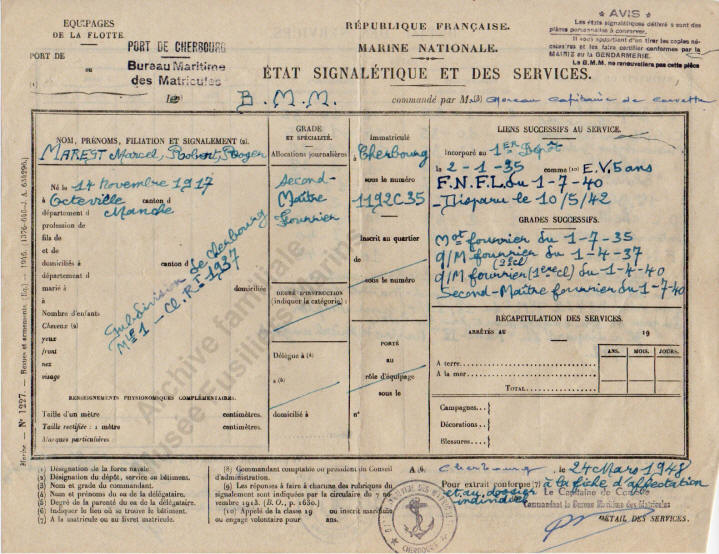 ÉQUIPAGES
DE LA FLOTTE.
PORT DE
PORT DE CHERBOURG
ou
Bureau Maritime
des Matricules
RÉPUBLIQUE FRANÇAISE.
MARINE NATIONALE.
ÉTAT SIGNALÉTIQUE ET DES SERVICES.
* AVIS *
Les états signalétiques délivré s sont des
pièces personnelles à conserver.
Il vous appartient d'en tirer les copies né-
cessaires et les faire certifier conformes par la
MAIRIE ou la GENDARMERIE.
Le B.M.M. ne renouvellera pas cette pièce
B.M.M.
commandé par M. (3) Moreau Capitaine de corvette
NOM, PRÉNOMS, FILIATION ET SIGNALEMENT (2).
MAREST Marcel, Robert, Roger
Né le 14 novembre 1917
à Octeville canton d
département d Manche
profession de
fils de
et de
domiciliés à canton d
département d
marié à domiciliée
à
Nombre d'enfants
Cheveux (2)
yeux
front
nez
visage
Subdivision de Cherbourg
Mle 1 - Cl. R. 1937
RENSEIGNEMENTS PHYSIONOMIQUES COMPLÉMENTAIRES.
Taille d'un mètre centimètres.
Taille rectifiée : 1 mètre centimètres.
Marques particulières
GRADE
ET SPÉCIALITÉ.
Allocations journalières
Second-
Maître
Fourrier
DEGRÉ D'INSTRUCTION
(indiquer la catégorie) :
Délégue à (4)
à (5)
domicilié à
Immatriculé
à
Cherbourg
sous le numéro
1192C35
Inscrit au quartier
de
sous le numéro
PORTÉ
au
rôle d'équipage
sous le
n°
LIENS SUCCESSIFS AU SERVICE.
Incorporé au 1ER Dépôt
le 2-1-35 comme (10) E.V. 5 ans
F.N.F.L. du 1-7-40
- Disparu le 10/5/42
GRADES SUCCESSIFS.
Mot fourrier du 1-7-35
q/M fourrier du 1-4-37
(2e cl)
q/M fourrier (1ère cl) du 1-4-40
Second-Maître fourrier du 1-7-40
RÉCAPITULATION DES SERVICES.
ARRÊTÉS AU 19
ANS. MOIS. JOURS.
A terre
A la mer
TOTAL
Campagnes..
Décorations..
Blessures...
Archive familiale
Musée Fusiliers Marins
(1) Désignation de la force navale.
(2) Désignation du dépôt, service ou bâtiment.
(3) Nom et grade du commandant.
(4) Nom et prénoms du ou de la délégataire.
(5) Degré de parenté du ou de la délégataire.
(6) Indiquer le lieu où se trouve le bâtiment.
(7) A la matricule ou au livret matricule.
(8) Commandant comptable ou président du Conseil
d'administration.
(9) Les réponses à faire à chacune des rubriques du
signalement sont indiquées par la circulaire du 7 no-
vembre 1913. (B. O., p. 1630.)
(10) Appelé de la classe 19 ou inscrit maritime
ou engagé volontaire pour ans.
A (6) Cherbourg, le 24 Mars 1948
Pour extrait conforme (7) à la fiche d'affectation
et au dossier
individuel
Le Capitaine de Corvette
Commandant le Bureau Maritime des Matricules
DÉTAIL DES SERVICES.
CHERBOURG